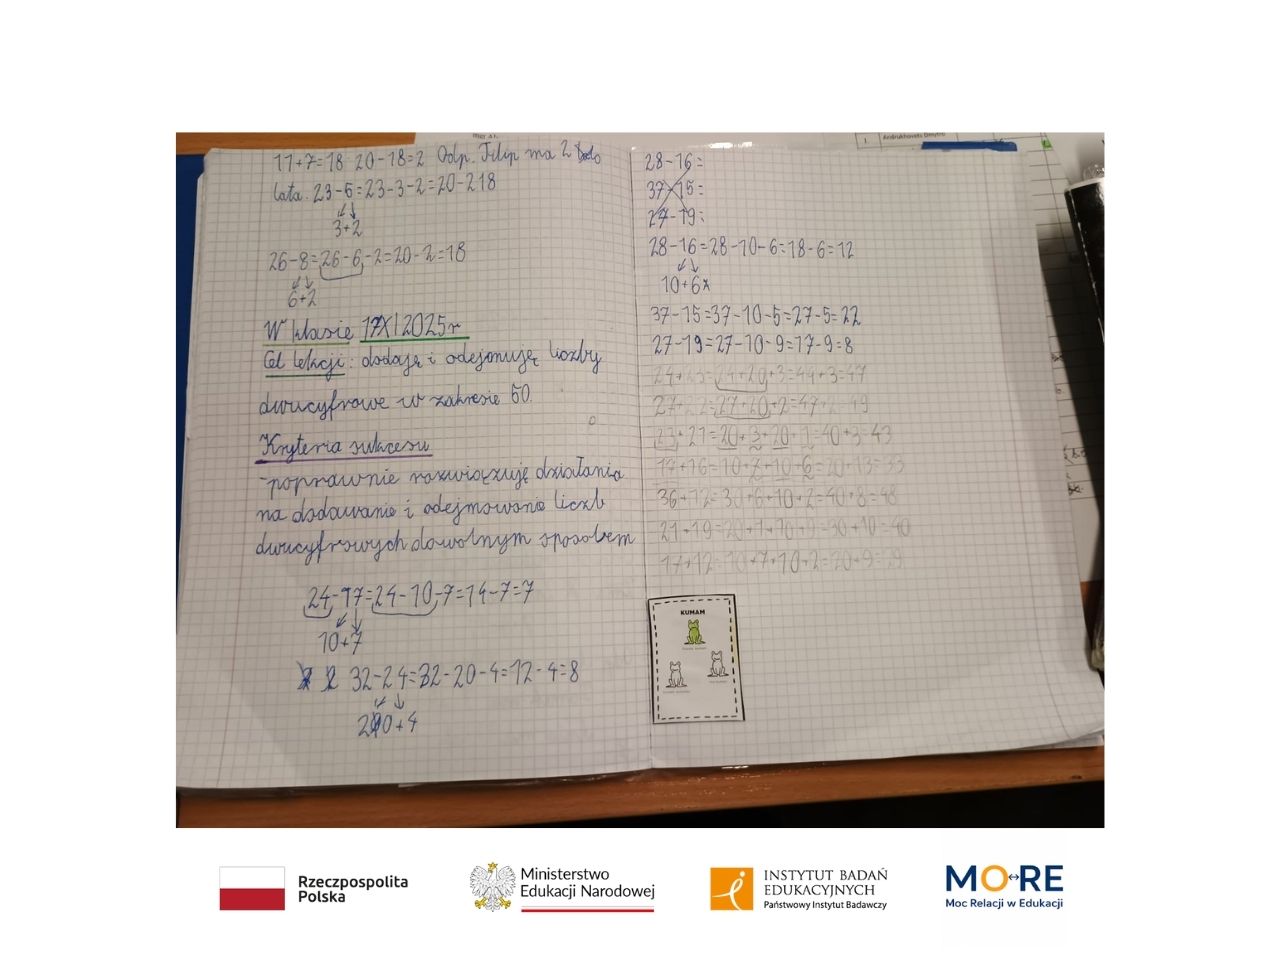 11+7=18 20-18=2 Odp. Filip ma 2
lata. 23-5=23-3-2=20-218
3+2
26-8=26-6-2=20-2=18
6+2
W klasie 17XI2025r
Cel lekcji: dodaję i odejmuję liczby
dwucyfrowe w zakresie 50.
Kryteria sukcesu
-poprawnie rozwiązuję działania
na dodawanie i odejmowanie liczb
dwucyfrowych dowolnym sposobem
24-17=24-10-7=14-7=7
10+7
32-24=32-20-4=12-4=8
20+4
28-16=
37-15=
27-19=
28-16=28-10-6=18-6=12
10+6
37-15=37-10-5=27-5=22
27-19=27-10-9=17-9=8
24+23=24+20+3=44+3=47
27+22=27+20+2=47+2=49
23+21=20+3+20+1=40+3=43
17+16=10+7+10+6=20+13=33
36+12=30+6+10+2=40+8=48
21+19=20+1+10+9=30+10=40
17+12=10+7+10+2=20+9=29
KUMAM
Rzeczpospolita
Polska
Ministerstwo
Edukacji Narodowej
INSTYTUT BADAŃ
EDUKACYJNYCH
Państwowy Instytut Badawczy
MORE
Moc Relacji w Edukacji